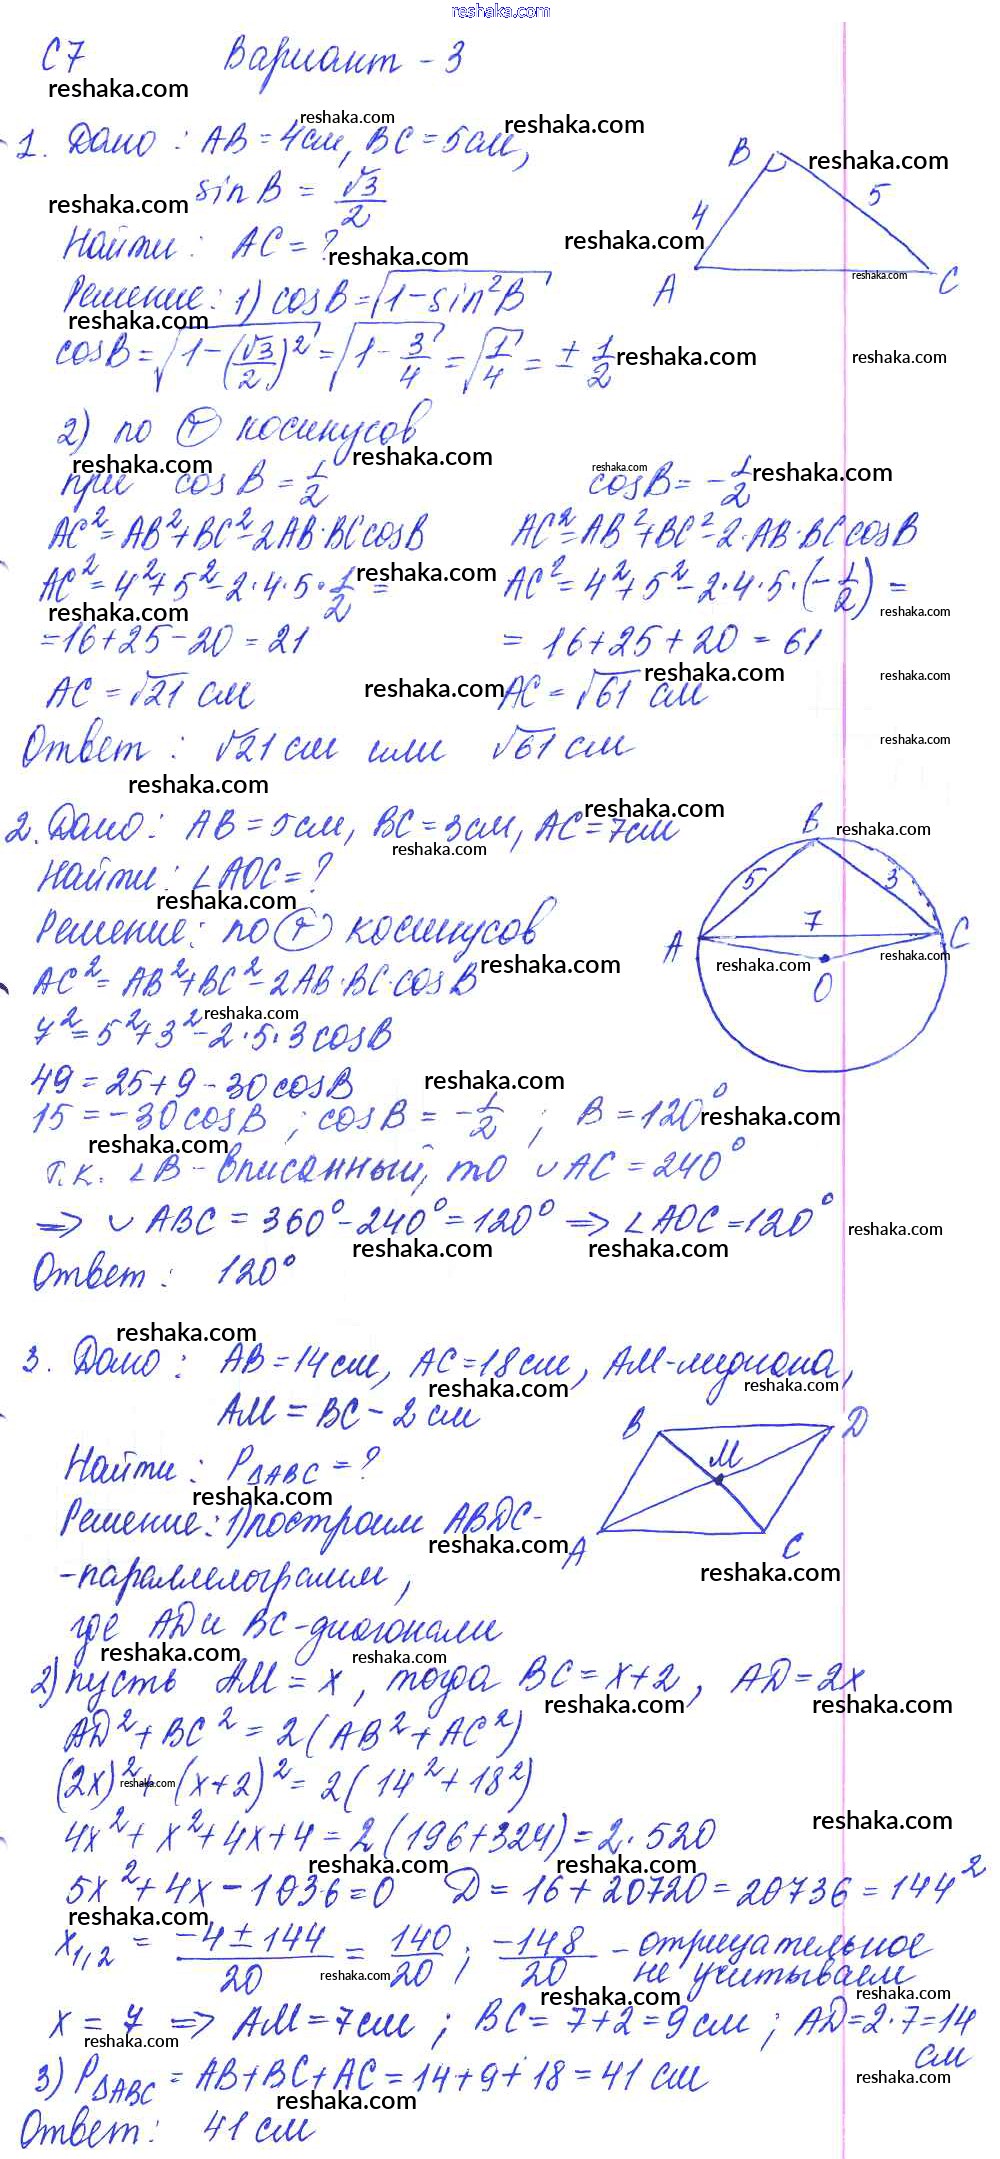 reshaka.com
С7 Вариант - 3
1. Дано: AB = 4см, BC = 5см,
sin B = √3/2
Найти: AC = ?
Решение: 1) cosB = √(1-sin²B)
cosB = √(1-(√3/2)²) = √(1-3/4) = √(1/4) = ± 1/2
2) по Ⓣ косинусов
при cos B = 1/2 cosB = -1/2
AC² = AB² + BC² - 2AB·BC cosB AC² = AB² + BC² - 2·AB·BC cosB
AC² = 4² + 5² - 2·4·5·1/2 = AC² = 4² + 5² - 2·4·5·(-1/2) =
= 16 + 25 - 20 = 21 = 16 + 25 + 20 = 61
AC = √21 см AC = √61 см
Ответ: √21 см или √61 см
B 4 5 A C
2. Дано: AB = 5см, BC = 3см, AC = 7см
Найти: ∠AOC = ?
Решение: по Ⓣ косинусов
AC² = AB² + BC² - 2AB·BC·cosB
7² = 5² + 3² - 2·5·3cosB
49 = 25 + 9 - 30cosB
15 = -30cosB; cosB = -1/2; B = 120°
т.к. ∠B - вписанный, то ∪AC = 240°
=> ∪ABC = 360° - 240° = 120° => ∠AOC = 120°
Ответ: 120°
B 5 3 A 7 C O
3. Дано: AB = 14см, AC = 18см, AM - медиана,
AM = BC - 2 см
Найти: P△ABC = ?
Решение: 1) построим ABDC-
-параллелограмм,
где AD и BC - диагонали
2) пусть AM = x, тогда BC = x+2, AD = 2x
AD² + BC² = 2(AB² + AC²)
(2x)² + (x+2)² = 2(14² + 18²)
4x² + x² + 4x + 4 = 2(196+324) = 2·520
5x² + 4x - 1036 = 0 D = 16 + 20720 = 20736 = 144²
x1,2 = (-4 ± 144)/20 = 140/20; -148/20 - отрицательное
не учитываем
x = 7 => AM = 7см; BC = 7+2 = 9см; AD = 2·7 = 14
см
3) P△ABC = AB + BC + AC = 14 + 9 + 18 = 41 см
Ответ: 41 см
B D M A C